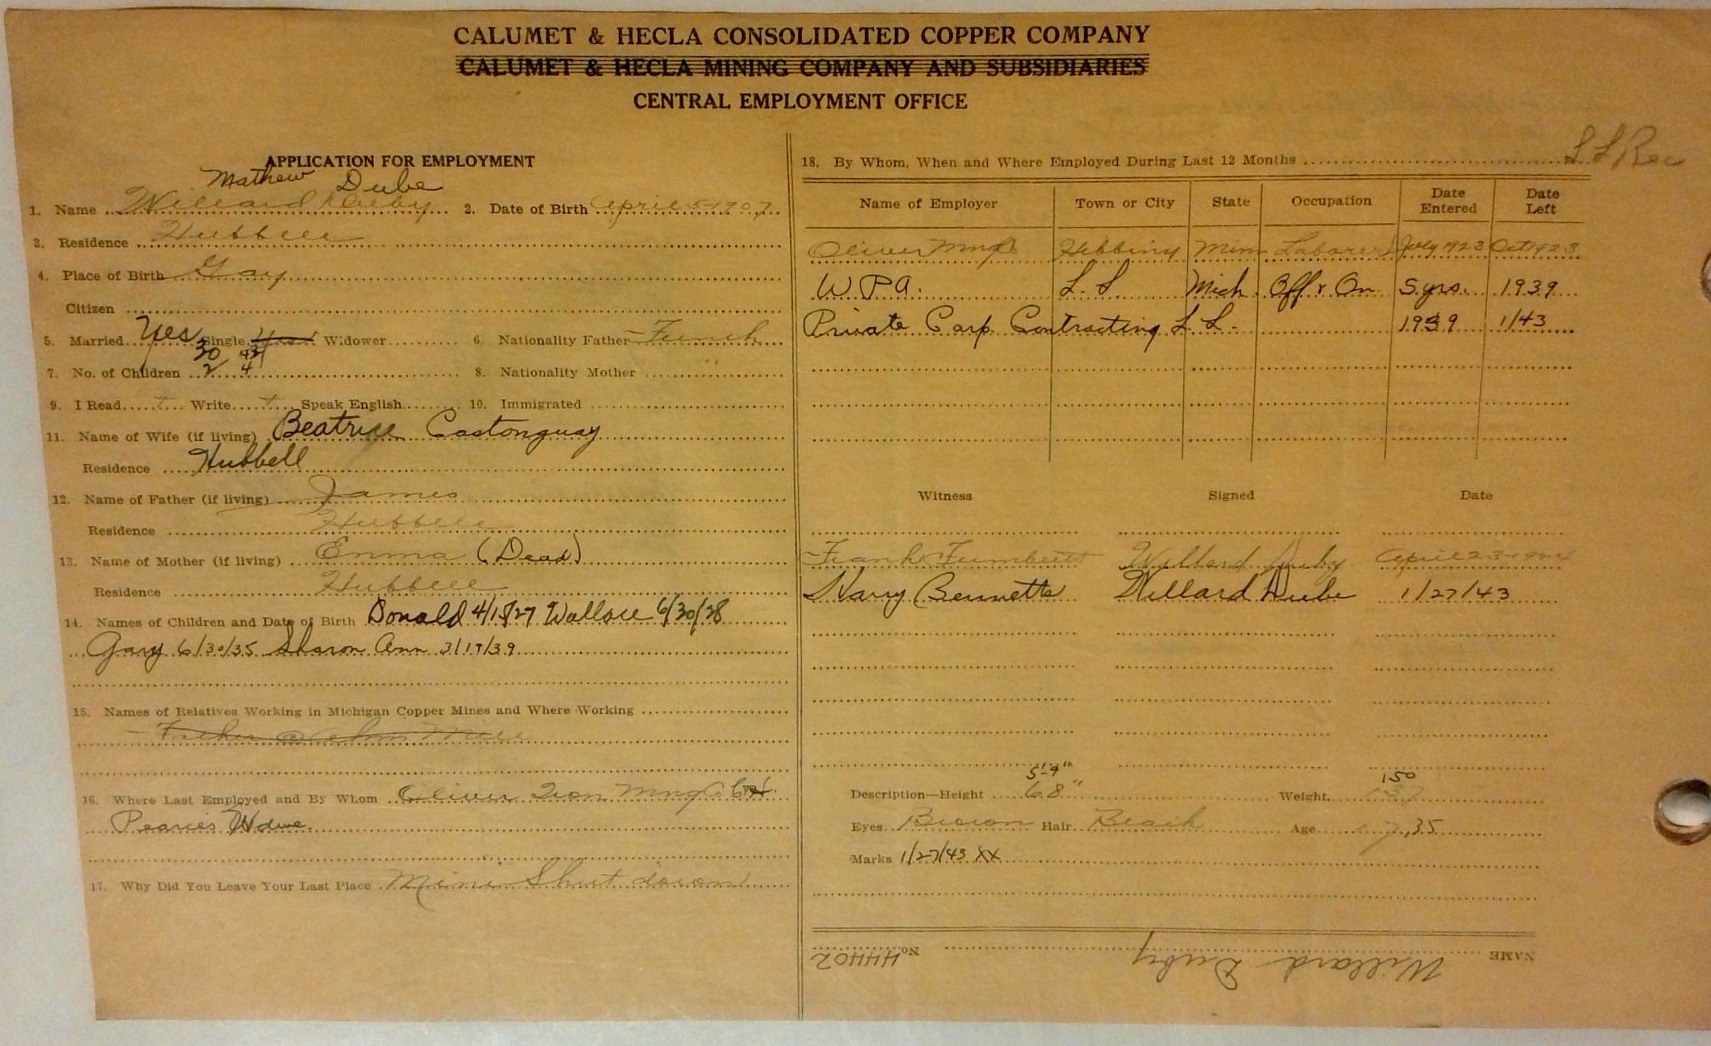 CALUMET & HECLA CONSOLIDATED COPPER COMPANY
CALUMET & HECLA MINING COMPANY AND SUBSIDIARIES
CENTRAL EMPLOYMENT OFFICE
APPLICATION FOR EMPLOYMENT
Mathew Dube
1. Name Willard Duby 2. Date of Birth April 5 1907
3. Residence Hubbell
4. Place of Birth Gay
Citizen
5. Married Yes Single Widower 6. Nationality Father French
30 43
7. No. of Children 2 4 8. Nationality Mother "
9. I Read + Write + Speak English 10. Immigrated
11. Name of Wife (if living) Beatrice Castonguay
Residence Hubbell
12. Name of Father (if living) James
Residence Hubbell
13. Name of Mother (if living) Emma (Dead)
Residence Hubbell
14. Names of Children and Date of Birth Donald 4/15/27 Wallace 6/30/28
Gary 6/30/35 Sharon Ann 3/17/39
15. Names of Relatives Working in Michigan Copper Mines and Where Working
Father @ Mill
16. Where Last Employed and By Whom Oliver Iron Mng Co
17. Why Did You Leave Your Last Place Mine Shut down
18. By Whom, When and Where Employed During Last 12 Months L L Rec
Name of Employer Town or City State Occupation Date Entered Date Left
Oliver Mng Co Hibbing Minn Laborer July 1923 Oct 1923
W P A. L. L. Mich Off & On 5 yrs. 1939
Private Carp Contracting L L. 1939 1/43
Witness Signed Date
Frank Willard Duby April 23-1924
Harry Bennetts Willard Dube 1/27/43
5'-9" 150
Description—Height 68" Weight 137
Eyes Brown Hair Black Age 17, 35
Marks 1/27/43 XX
NAME Willard Duby No. 44402